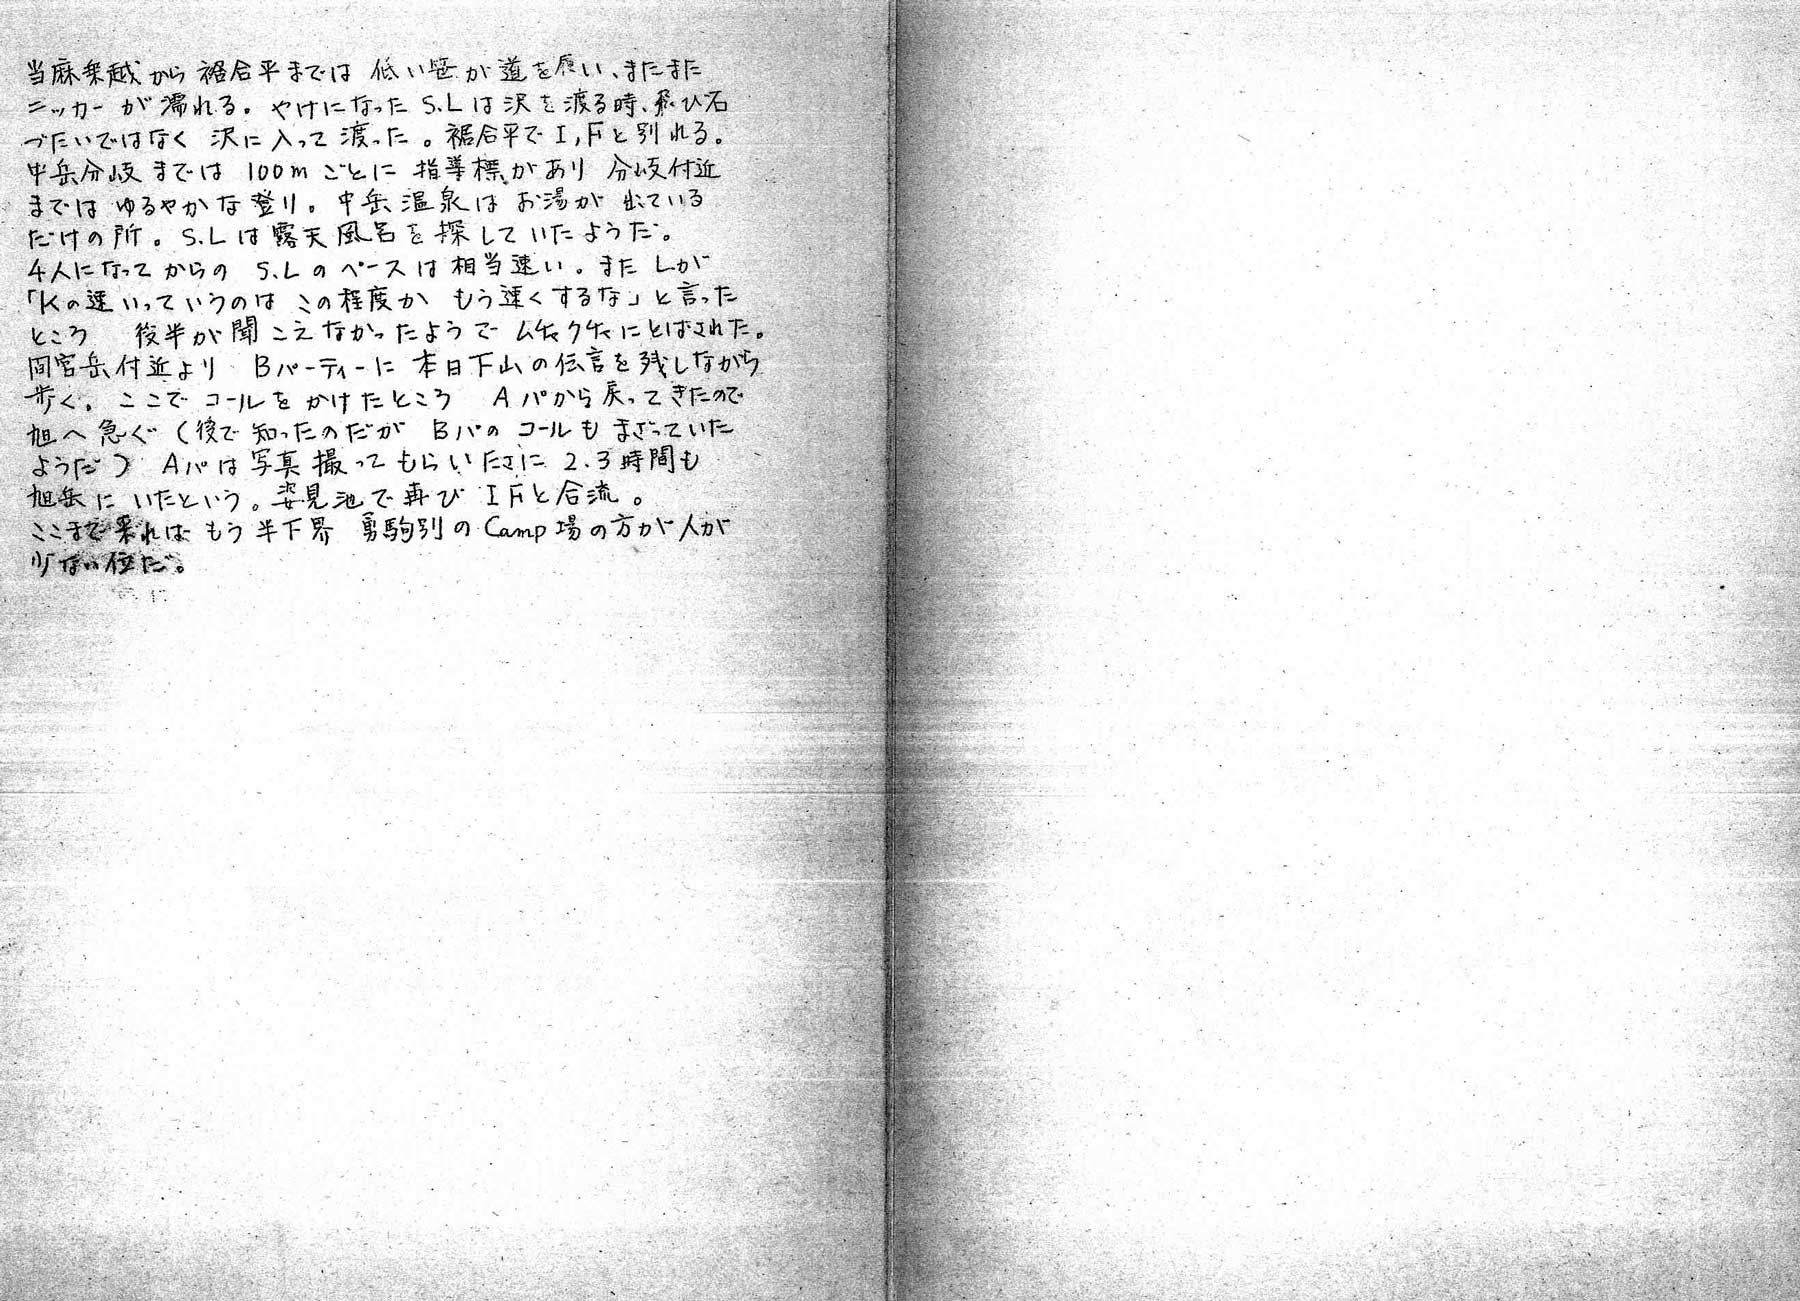 当麻乗越から裾合平までは 低い笹が道を覆い、またまた
ニッカーが濡れる。やけになったS.Lは沢を渡る時、飛び石
づたいではなく 沢に入って渡った。裾合平でI,Fと別れる。
中岳分岐までは 100mごとに 指導標があり 分岐付近
までは ゆるやかな登り。中岳温泉は お湯が 出ている
だけの所。S.Lは露天風呂を探していたようだ。
4人になってからの S.Lのペースは相当速い。また Lが
「Kの速いっていうのは この程度か もう速くするな」と言った
ところ 後半が聞こえなかったようで ムチャクチャにとばされた。
間宮岳付近より Bパーティーに 本日下山の伝言を残しながら
歩く。ここで コールを かけたところ Aパから戻ってきたので
旭へ急ぐ(後で知ったのだが Bパの コールも まざっていた
ようだ) Aパは写真撮ってもらいたさに 2.3時間も
旭岳に いたという。姿見池で再び I Fと合流。
ここまで来れば もう半下界 勇駒別のCamp場の方が人が
少ない位だ。